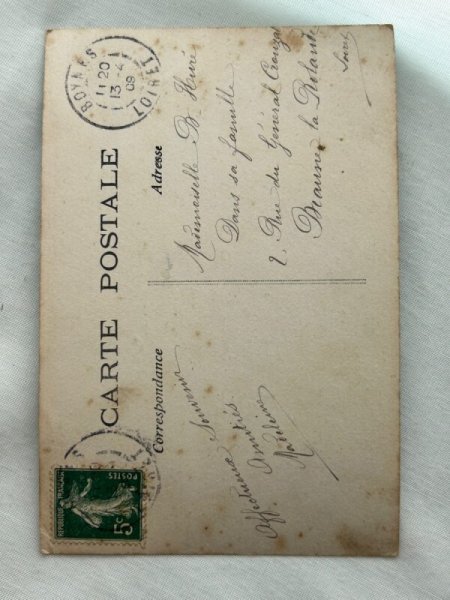 CARTE POSTALE
Correspondance
Adresse
Affectueux Souvenir
Amitiés
Madeleine
Mademoiselle B.
Dans sa famille
2 Rue du Général Crouzat
Beaune la Rolande
Loiret
BOYNES
11 20
13 -4
09
LOIRET
REPUBLIQUE FRANÇAISE
POSTES
5c